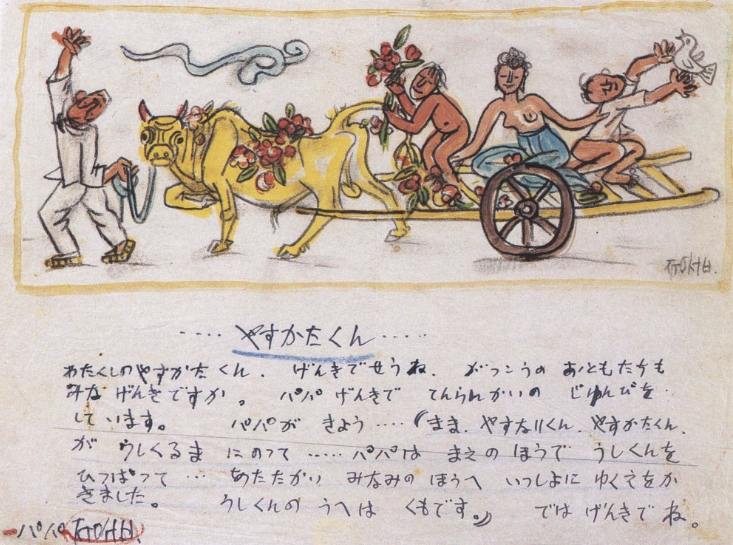 ㅈㅜㅇㅅㅓㅂ.
..... やすかたくん .....
わたくしのやすかたくん、げんきでせうね。がっこうの おともだちも
みな げんきですか。パパ げんきで てんらんかいの じゅんびを
しています。 パパが きょう ....(まま、やすなりくん、やすかたくん、
が うしくるま にのって ..... パパは まえの ほうで うしくんを
ひっぱって ... あたたかい みなみの ほうへ いっしょに ゆくえをか
きました。 うしくんの うへは くもです。) では げんきで ね。
パパ ㅈㅜㅇㅅㅓㅂ.